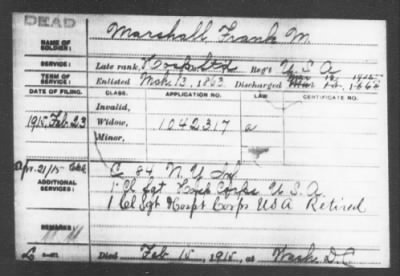 DEAD
NAME OF SOLDIER: Marshall, Frank M.
SERVICE: Late rank, Reg't U.S.A
TERM OF SERVICE: Enlisted 13, 1863. Discharged
DATE OF FILING. CLASS. APPLICATION NO. LAW. CERTIFICATE NO.
Invalid,
1915 Feb. 23 Widow, 1042317 a
Minor,
C 84 N.Y. Inf
ADDITIONAL SERVICES: 1 Cl. Sgt Hosp Corps U.S.A.
1 Cl Sgt Hospt Corps USA Retired
REMARKS:
Died Feb 15, 1915, at Wash. D.C.